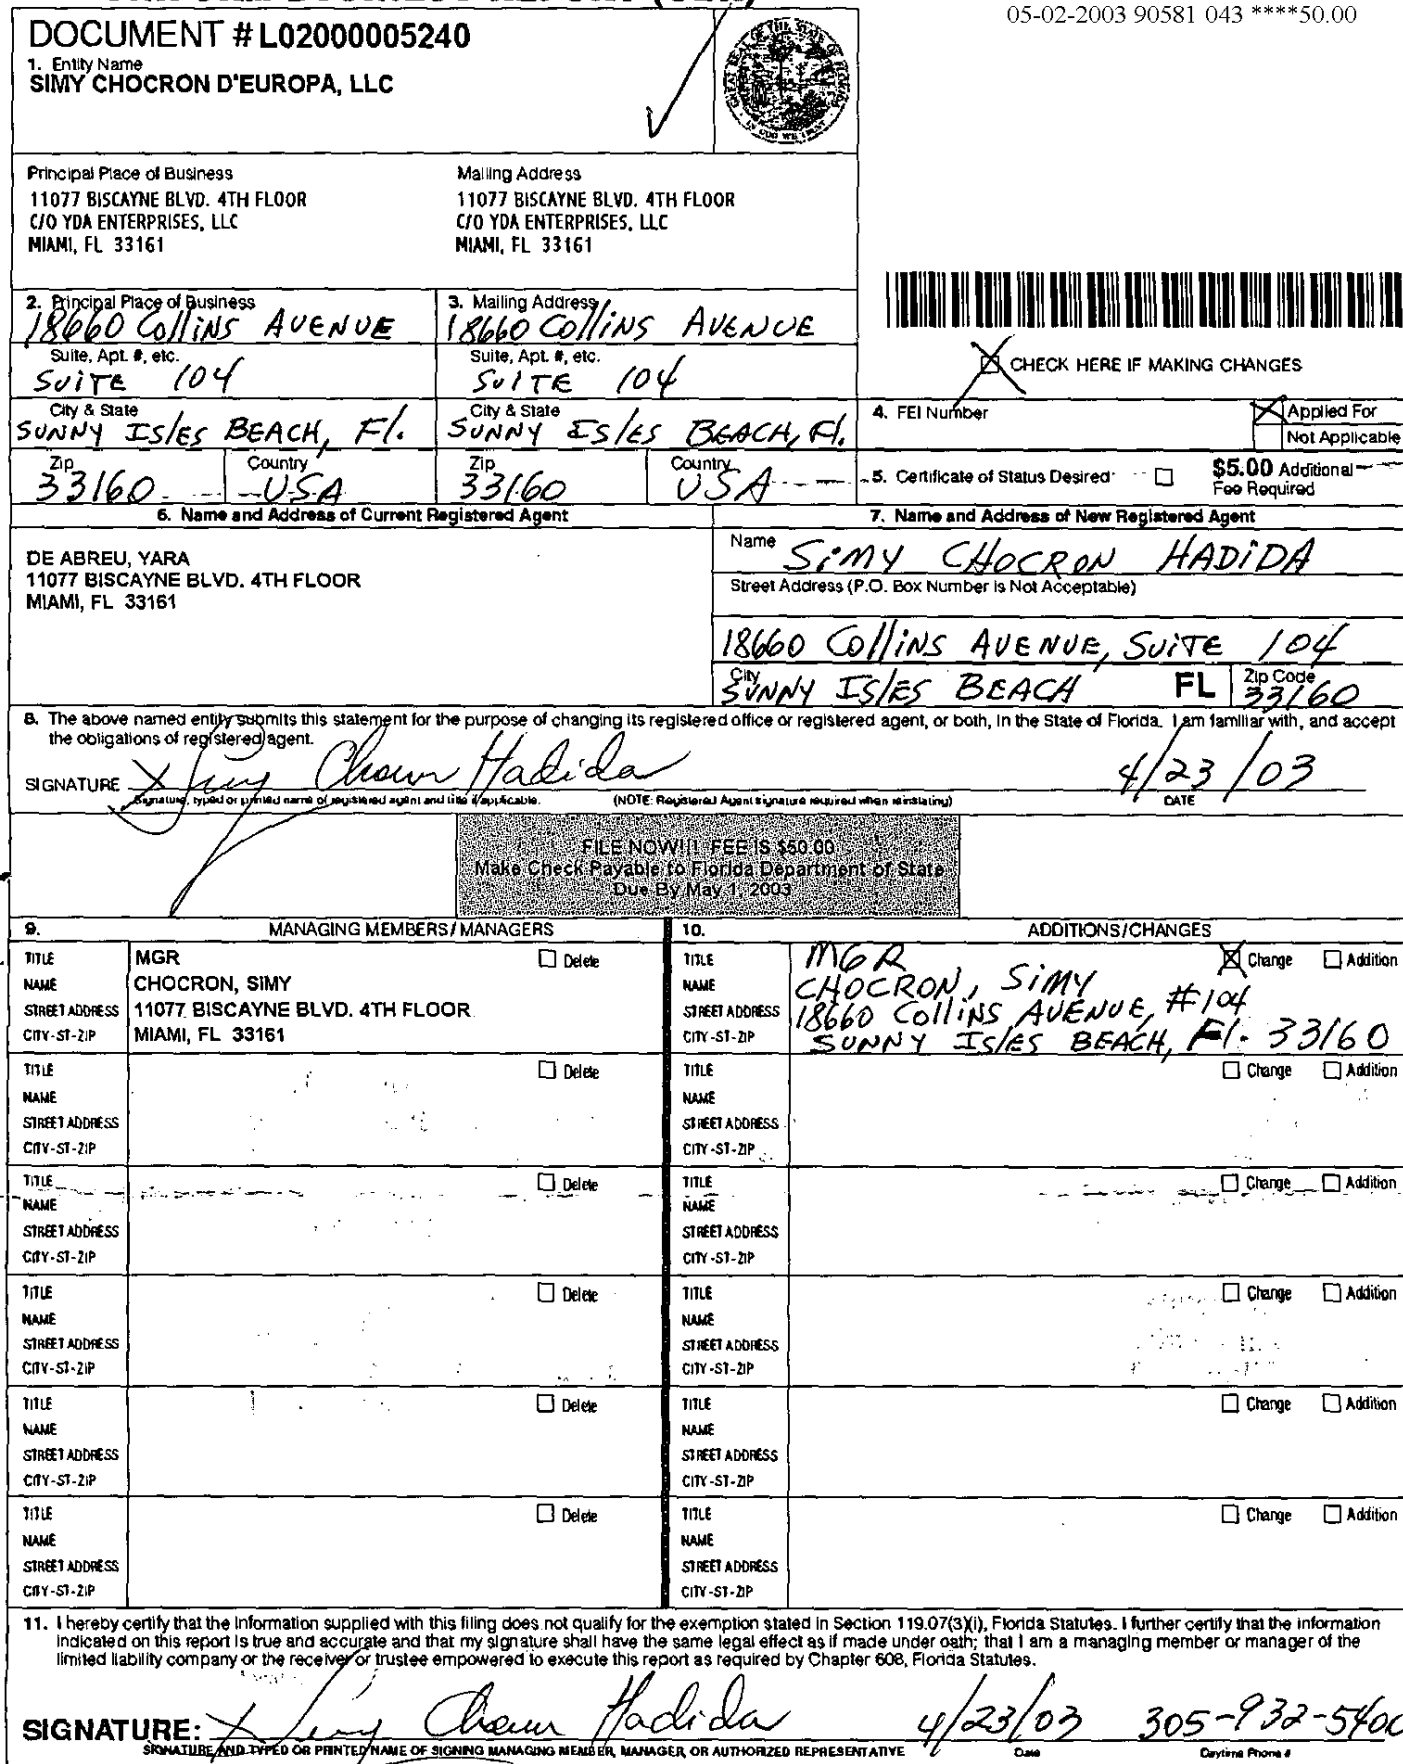 05-02-2003 90581 043 ****50.00
DOCUMENT # L02000005240
1. Entity Name
SIMY CHOCRON D'EUROPA, LLC
Principal Place of Business
11077 BISCAYNE BLVD. 4TH FLOOR
C/O YDA ENTERPRISES, LLC
MIAMI, FL 33161
Mailing Address
11077 BISCAYNE BLVD. 4TH FLOOR
C/O YDA ENTERPRISES, LLC
MIAMI, FL 33161
2. Principal Place of Business
18660 Collins AVENUE
3. Mailing Address
18660 Collins AVENUE
Suite, Apt. #, etc.
SUITE 104
Suite, Apt. #, etc.
SUITE 104
CHECK HERE IF MAKING CHANGES
City & State
SUNNY ISLES BEACH, Fl.
City & State
SUNNY ISLES BEACH, Fl.
4. FEI Number
Applied For
Not Applicable
Zip
33160
Country
USA
Zip
33160
Country
USA
5. Certificate of Status Desired
$5.00 Additional
Fee Required
6. Name and Address of Current Registered Agent
7. Name and Address of New Registered Agent
DE ABREU, YARA
11077 BISCAYNE BLVD. 4TH FLOOR
MIAMI, FL 33161
Name SIMY CHOCRON HADIDA
Street Address (P.O. Box Number is Not Acceptable)
18660 Collins AVENUE, SUITE 104
City
SUNNY ISLES BEACH FL
Zip Code
33160
8. The above named entity submits this statement for the purpose of changing its registered office or registered agent, or both, in the State of Florida. I am familiar with, and accept
the obligations of registered agent.
SIGNATURE X Simy Chocron Hadida 4/23/03
Signature, typed or printed name of registered agent and title if applicable. (NOTE: Registered Agent signature required when reinstating) DATE
FILE NOW!!! FEE IS $50.00
Make Check Payable to Florida Department of State
Due By May 1, 2003
9. MANAGING MEMBERS/MANAGERS
10. ADDITIONS/CHANGES
TITLE MGR Delete
NAME CHOCRON, SIMY
STREET ADDRESS 11077 BISCAYNE BLVD. 4TH FLOOR
CITY-ST-ZIP MIAMI, FL 33161
TITLE MGR Change Addition
NAME CHOCRON, SIMY
STREET ADDRESS 18660 Collins AVENUE, #104
CITY-ST-ZIP SUNNY ISLES BEACH, Fl. 33160
TITLE Delete
NAME
STREET ADDRESS
CITY-ST-ZIP
TITLE Change Addition
NAME
STREET ADDRESS
CITY-ST-ZIP
TITLE Delete
NAME
STREET ADDRESS
CITY-ST-ZIP
TITLE Change Addition
NAME
STREET ADDRESS
CITY-ST-ZIP
TITLE Delete
NAME
STREET ADDRESS
CITY-ST-ZIP
TITLE Change Addition
NAME
STREET ADDRESS
CITY-ST-ZIP
TITLE Delete
NAME
STREET ADDRESS
CITY-ST-ZIP
TITLE Change Addition
NAME
STREET ADDRESS
CITY-ST-ZIP
TITLE Delete
NAME
STREET ADDRESS
CITY-ST-ZIP
TITLE Change Addition
NAME
STREET ADDRESS
CITY-ST-ZIP
11. I hereby certify that the information supplied with this filing does not qualify for the exemption stated in Section 119.07(3)(i), Florida Statutes. I further certify that the information
indicated on this report is true and accurate and that my signature shall have the same legal effect as if made under oath; that I am a managing member or manager of the
limited liability company or the receiver or trustee empowered to execute this report as required by Chapter 608, Florida Statutes.
SIGNATURE: X Simy Chocron Hadida 4/23/03 305-932-5400
SIGNATURE AND TYPED OR PRINTED NAME OF SIGNING MANAGING MEMBER, MANAGER, OR AUTHORIZED REPRESENTATIVE Date Daytime Phone #